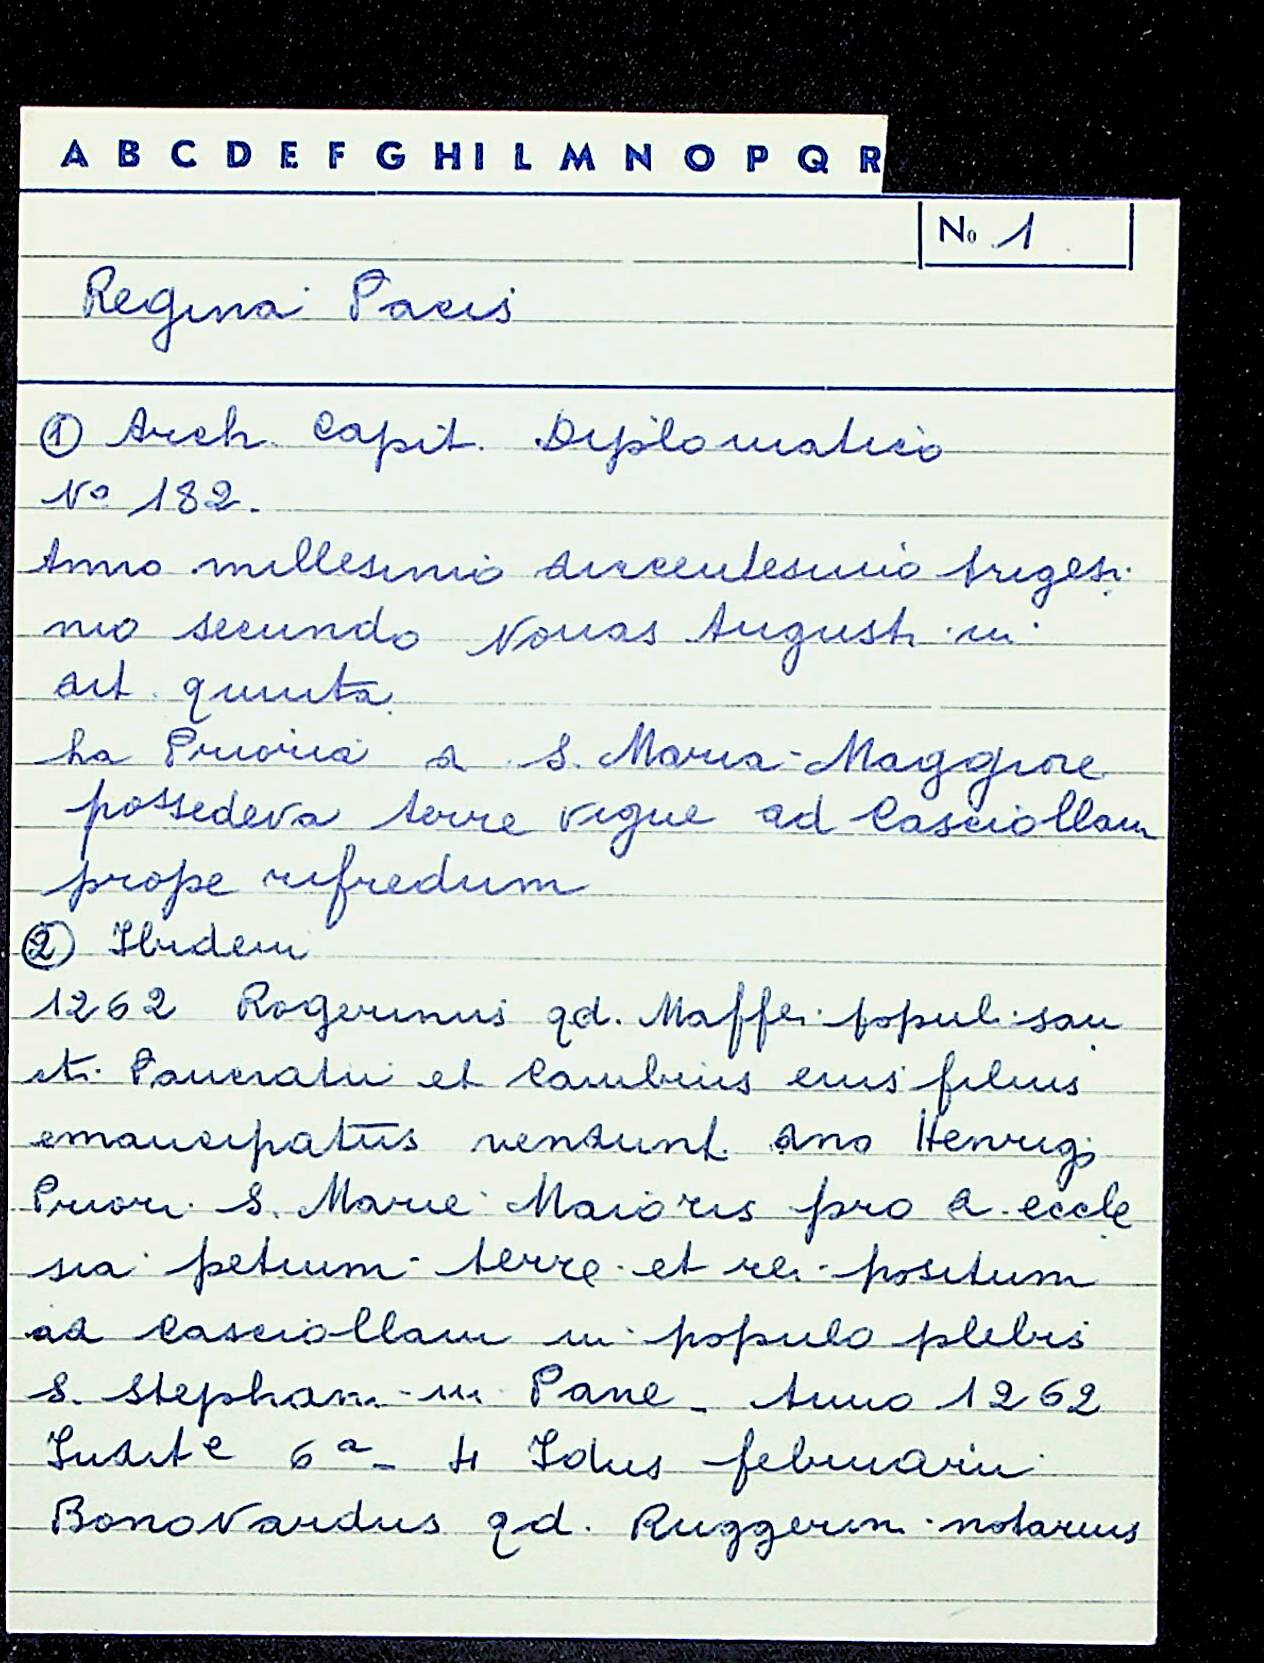 A B C D E F G H I L M N O P Q R
No 1
Regina Pacis
① Arch. Capit. Diplomatico
No 182.
Anno millesimo ducentesimo trigesi
mo secundo Nonas Augusti in
dit. quinta
La Prioria di S. Maria Maggiore
possedeva terre vigne ad Casciollam
prope rifredum
② Ibidem
1262 Rogerinus qd. Maffei populi san
cti Pancratii et Cambius eius filius
emancipatus vendunt dno Henrigo
Priori S. Marie Maioris pro d. eccle
sia petium terre et rei positum
ad Casciollam in populo plebis
S. Stephani in Pane _ Anno 1262
Indite 6a _ 4 Idus februarii
Bonovardus qd. Ruggerini notarius